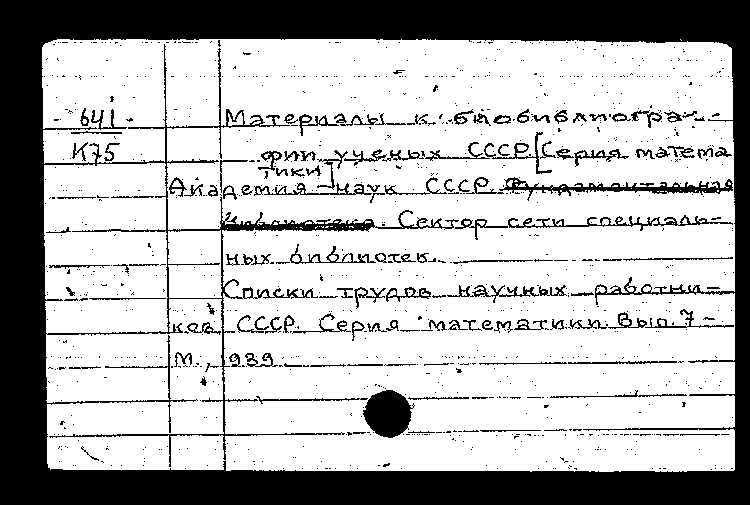 641
К75
Материалы к биобиблиогра-
фии ученых СССР [Серия матема
тики]
Академия наук СССР. Фундаментальная
библиотека. Сектор сети специаль-
ных библиотек.
Списки трудов научных работни-
ков СССР. Серия математики. Вып. 7-
М., 1939.